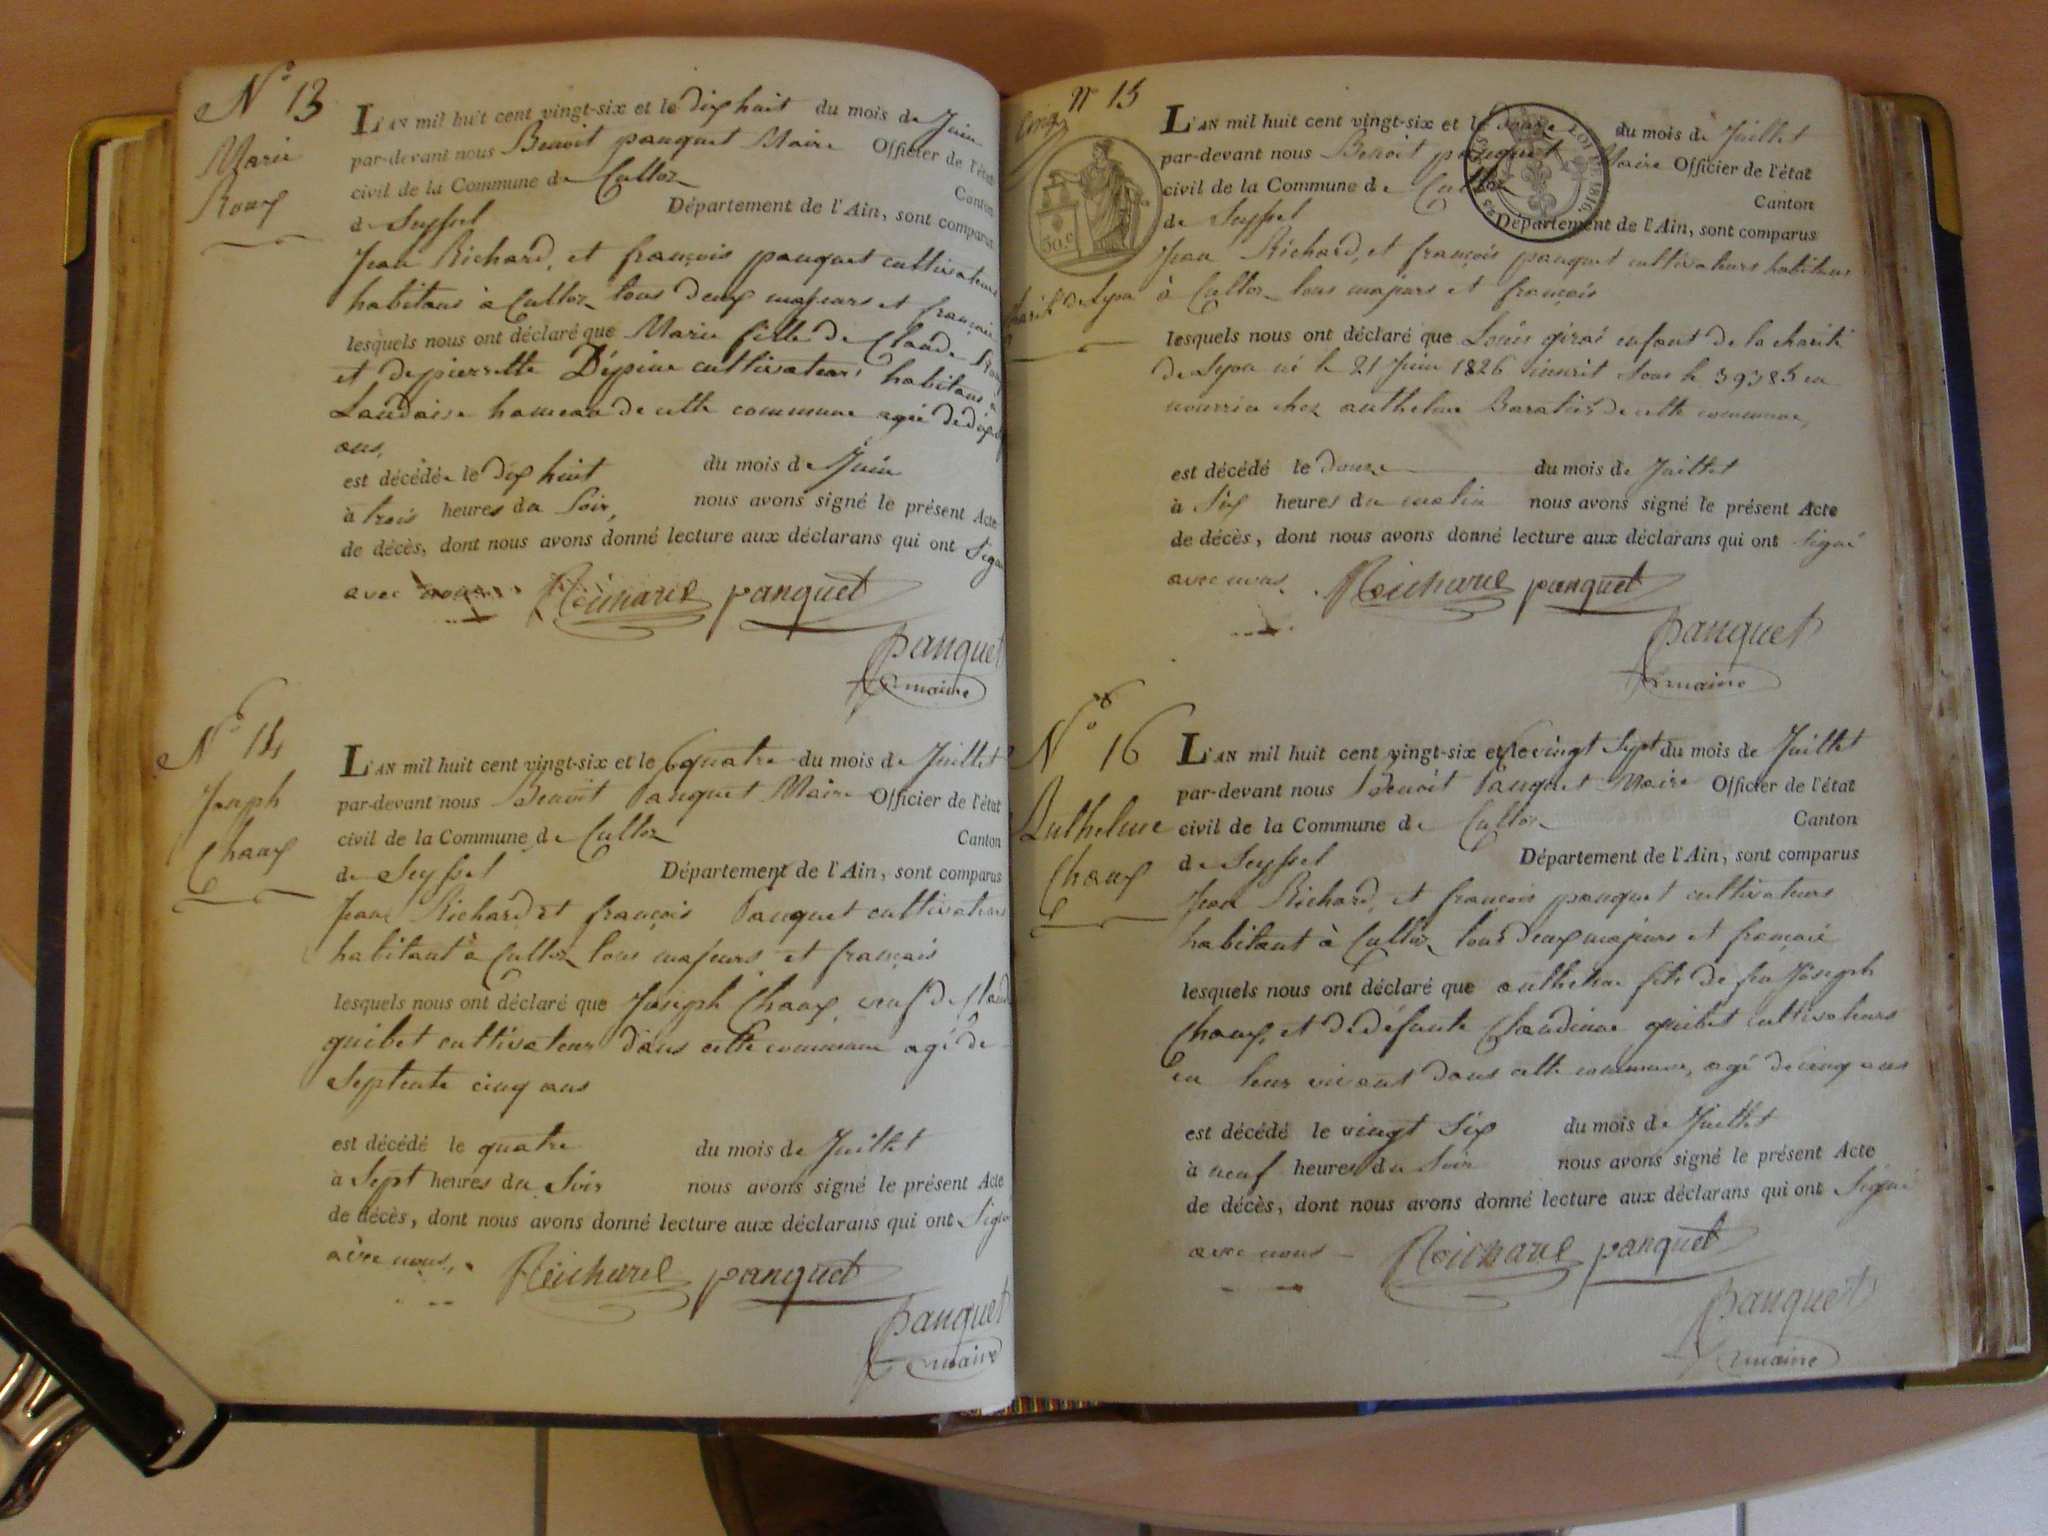 N° 13
Marie
Roux
L'AN mil huit cent vingt-six et le dix huit du mois de Juin
par-devant nous Benoit panquet Maire Officier de l'état
civil de la Commune de Culloz Canton
de Seyssel Département de l'Ain, sont comparus
Jean Richard, et françois panquet cultivateurs
habitans à Culloz tous deux majeurs et français
lesquels nous ont déclaré que Marie fille de Claude Roux
et de pierrette Dépine cultivateurs habitans à
Landaise hameau de cette commune agée de
ans,
est décédée le dix huit du mois de Juin
à trois heures du Soir, nous avons signé le présent Acte
de décès, dont nous avons donné lecture aux déclarans qui ont Signé
avec nous
Richard panquet
panquet
maire
N° 14
Joseph
Chaux
L'AN mil huit cent vingt-six et le quatre du mois de Juillet
par-devant nous Benoit Panquet Maire Officier de l'état
civil de la Commune de Culloz Canton
de Seyssel Département de l'Ain, sont comparus
Jean Richard et françois Panquet cultivateurs
habitant à Culloz tous majeurs et français
lesquels nous ont déclaré que Joseph Chaux, veuf de
guibet cultivateur dans cette commune agé de
Septente cinq ans
est décédé le quatre du mois de Juillet
à Sept heures du Soir nous avons signé le présent Acte
de décès, dont nous avons donné lecture aux déclarans qui ont Signé
avec nous,
Richard panquet
panquet
maire
n° 15
Cinq
50.c
charité de Lyon
L'AN mil huit cent vingt-six et le douze du mois de Juillet
par-devant nous Benoit panquet Maire Officier de l'état
civil de la Commune de Culloz Canton
de Seyssel Département de l'Ain, sont comparus
Jean Richard, et françois panquet cultivateurs habitans
à Culloz tous majeurs et français
lesquels nous ont déclaré que Louis enfant de la charité
de Lyon né le 21 Juin 1826 inscrit Sous le 39385 en
nourrice chez anthelme de cette commune,
est décédé le douze du mois de Juillet
à Six heures du matin nous avons signé le présent Acte
de décès, dont nous avons donné lecture aux déclarans qui ont signé
avec nous.
Richard panquet
panquet
maire
N° 16
Anthelme
Chaux
L'AN mil huit cent vingt-six et le vingt Sept du mois de Juillet
par-devant nous Benoit Panquet Maire Officier de l'état
civil de la Commune de Culloz Canton
de Seyssel Département de l'Ain, sont comparus
Jean Richard, et françois panquet cultivateurs
habitant à Culloz tous deux majeurs et français
lesquels nous ont déclaré que anthelme fils de feu Joseph
Chaux, et de défunte Claudine guibet cultivateurs
en leur vivant dans cette commune, agé de cinq ans
est décédé le vingt Six du mois de Juillet
à neuf heures du Soir nous avons signé le présent Acte
de décès, dont nous avons donné lecture aux déclarans qui ont Signé
avec nous
Richard panquet
panquet
maire